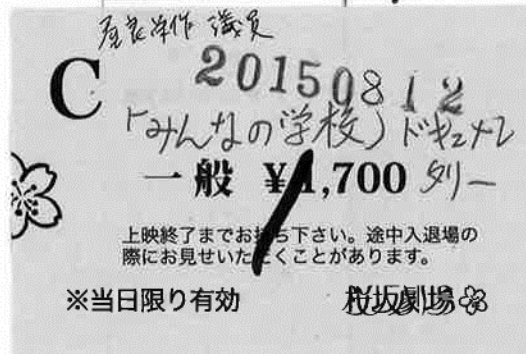 屋良栄作 議員
C
20150812
「みんなの学校」ドキュメン
一般 ¥1,700 タリー
上映終了までお持ち下さい。途中入退場の
際にお見せいただくことがあります。
※当日限り有効 桜坂劇場